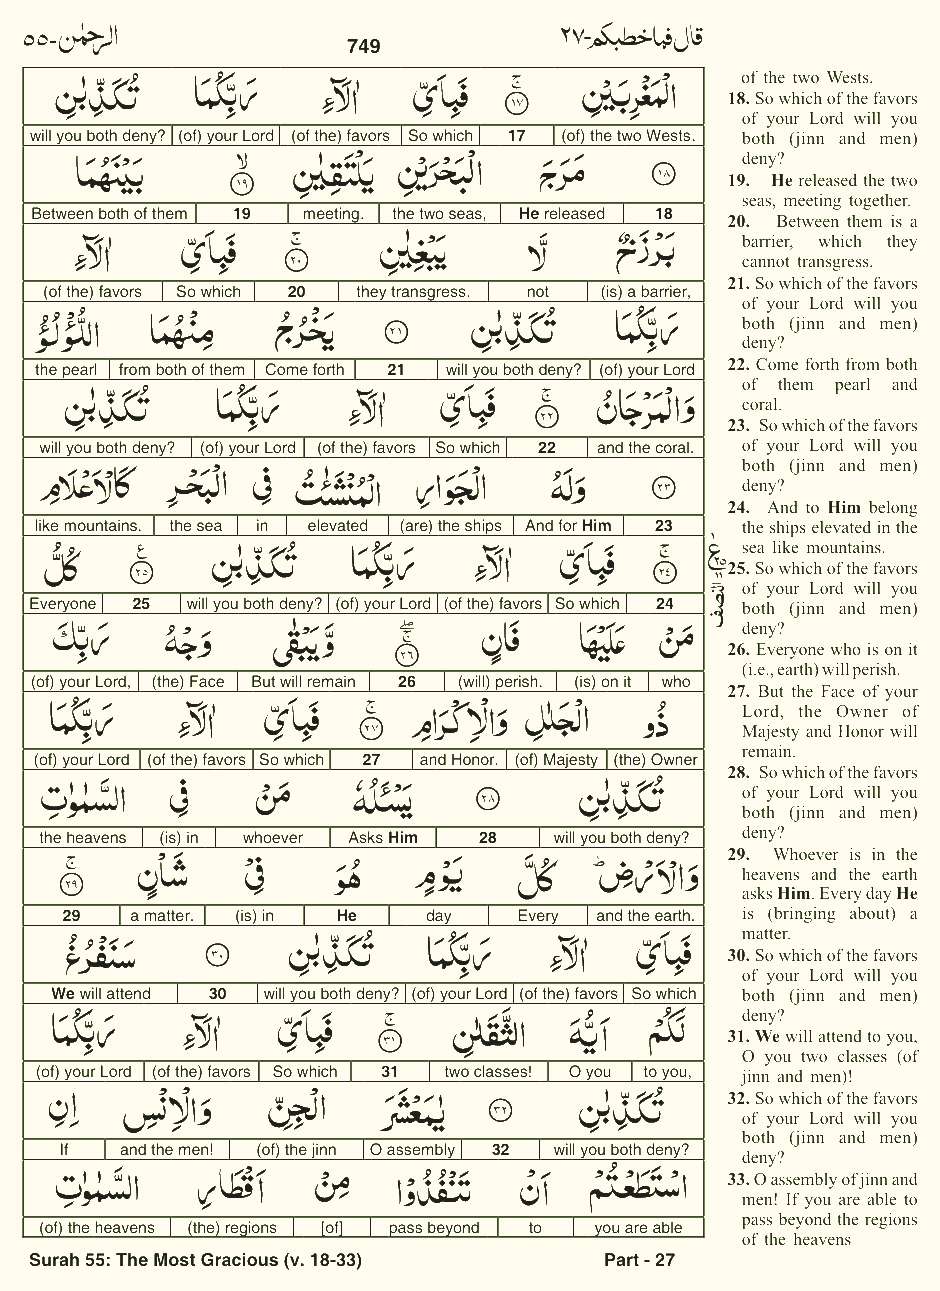 قال فما خطبكم-٢٧
749
الرحمٰن-٥٥
الْمَغْرِبَيْنِ ۚ ﴿١٧﴾ فَبِاَيِّ اٰلَآءِ رَبِّكُمَا تُكَذِّبٰنِ
(of) the two Wests. 17 So which (of the) favors (of) your Lord will you both deny?
﴿١٨﴾ مَرَجَ الْبَحْرَيْنِ يَلْتَقِيٰنِ ۙ ﴿١٩﴾ بَيْنَهُمَا
18 He released the two seas, meeting. 19 Between both of them
بَرْزَخٌ لَّا يَبْغِيٰنِ ۚ ﴿٢٠﴾ فَبِاَيِّ اٰلَآءِ
(is) a barrier, not they transgress. 20 So which (of the) favors
رَبِّكُمَا تُكَذِّبٰنِ ﴿٢١﴾ يَخْرُجُ مِنْهُمَا اللُّؤْلُؤُ
(of) your Lord will you both deny? 21 Come forth from both of them the pearl
وَالْمَرْجَانُ ۚ ﴿٢٢﴾ فَبِاَيِّ اٰلَآءِ رَبِّكُمَا تُكَذِّبٰنِ
and the coral. 22 So which (of the) favors (of) your Lord will you both deny?
﴿٢٣﴾ وَلَهُ الْجَوَارِ الْمُنْشَئٰتُ فِي الْبَحْرِ كَالْاَعْلَامِ
23 And for Him (are) the ships elevated in the sea like mountains.
ۚ ﴿٢٤﴾ فَبِاَيِّ اٰلَآءِ رَبِّكُمَا تُكَذِّبٰنِ ۧ ﴿٢٥﴾ كُلُّ
24 So which (of the) favors (of) your Lord will you both deny? 25 Everyone
مَنْ عَلَيْهَا فَانٍ ۖ ﴿٢٦﴾ وَّيَبْقٰى وَجْهُ رَبِّكَ
who (is) on it (will) perish. 26 But will remain (the) Face (of) your Lord,
ذُو الْجَلٰلِ وَالْاِكْرَامِ ۚ ﴿٢٧﴾ فَبِاَيِّ اٰلَآءِ رَبِّكُمَا
(the) Owner (of) Majesty and Honor. 27 So which (of the) favors (of) your Lord
تُكَذِّبٰنِ ﴿٢٨﴾ يَسْـَٔلُهٗ مَنْ فِي السَّمٰوٰتِ
will you both deny? 28 Asks Him whoever (is) in the heavens
وَالْاَرْضِ ؕ كُلَّ يَوْمٍ هُوَ فِيْ شَاْنٍ ۚ ﴿٢٩﴾
and the earth. Every day He (is) in a matter. 29
فَبِاَيِّ اٰلَآءِ رَبِّكُمَا تُكَذِّبٰنِ ﴿٣٠﴾ سَنَفْرُغُ
So which (of the) favors (of) your Lord will you both deny? 30 We will attend
لَكُمْ اَيُّهَ الثَّقَلٰنِ ۚ ﴿٣١﴾ فَبِاَيِّ اٰلَآءِ رَبِّكُمَا
to you, O you two classes! 31 So which (of the) favors (of) your Lord
تُكَذِّبٰنِ ﴿٣٢﴾ يٰمَعْشَرَ الْجِنِّ وَالْاِنْسِ اِنِ
will you both deny? 32 O assembly (of) the jinn and the men! If
اسْتَطَعْتُمْ اَنْ تَنْفُذُوْا مِنْ اَقْطَارِ السَّمٰوٰتِ
you are able to pass beyond [of] (the) regions (of) the heavens
النصف
of the two Wests.
18. So which of the favors
of your Lord will you
both (jinn and men)
deny?
19. He released the two
seas, meeting together.
20. Between them is a
barrier, which they
cannot transgress.
21. So which of the favors
of your Lord will you
both (jinn and men)
deny?
22. Come forth from both
of them pearl and
coral.
23. So which of the favors
of your Lord will you
both (jinn and men)
deny?
24. And to Him belong
the ships elevated in the
sea like mountains.
25. So which of the favors
of your Lord will you
both (jinn and men)
deny?
26. Everyone who is on it
(i.e., earth) will perish.
27. But the Face of your
Lord, the Owner of
Majesty and Honor will
remain.
28. So which of the favors
of your Lord will you
both (jinn and men)
deny?
29. Whoever is in the
heavens and the earth
asks Him. Every day He
is (bringing about) a
matter.
30. So which of the favors
of your Lord will you
both (jinn and men)
deny?
31. We will attend to you,
O you two classes (of
jinn and men)!
32. So which of the favors
of your Lord will you
both (jinn and men)
deny?
33. O assembly of jinn and
men! If you are able to
pass beyond the regions
of the heavens
Surah 55: The Most Gracious (v. 18-33)
Part - 27